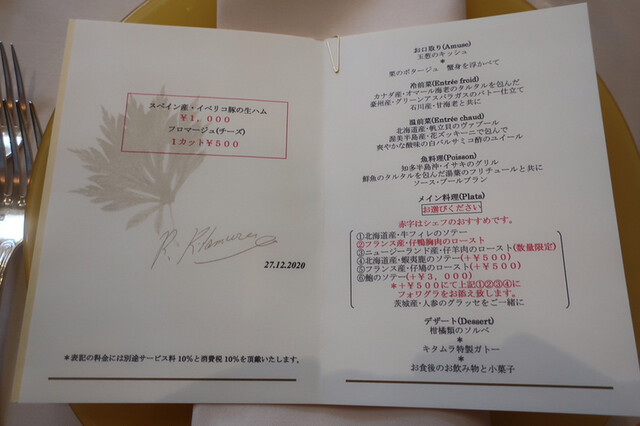 スペイン産・イベリコ豚の生ハム
￥1,000
フロマージュ(チーズ)
1カット￥500
R. Kitamura
27.12.2020
＊表記の料金には別途サービス料10％と消費税10％を頂戴いたします。
お口取り(Amuse)
玉葱のキッシュ
＊
栗のポタージュ 蟹身を浮かべて
冷前菜(Entrée froid)
カナダ産・オマール海老のタルタルを包んだ
豪州産・グリーンアスパラガスのバトー仕立て
石川産・甘海老と共に
温前菜(Entrée chaud)
北海道産・帆立貝のヴァプール
渥美半島産・花ズッキーニで包んで
爽やかな酸味の白バルサミコ酢のユイール
魚料理(Poisson)
知多半島沖・イサキのグリル
鮮魚のタルタルを包んだ湯葉のフリチュールと共に
ソース・ブールブラン
メイン料理(Plats)
お選びください
赤字はシェフのおすすめです。
①北海道産・牛フィレのソテー
②フランス産・仔鴨胸肉のロースト
③ニュージーランド産・仔羊肉のロースト(数量限定)
④北海道産・蝦夷鹿のソテー(＋￥500)
⑤フランス産・仔鳩のロースト(＋￥500)
⑥鮑のソテー(＋￥3,000)
＊＋￥500にて上記①②③④に
フォワグラをお添え致します。
茨城産・人参のグラッセをご一緒に
デザート(Dessert)
柑橘類のソルベ
＊
キタムラ特製ガトー
＊
お食後のお飲み物と小菓子